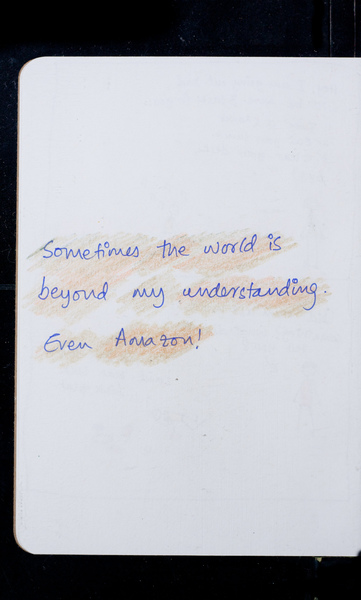 Sometimes the world is
beyond my understanding.
Even Amazon!